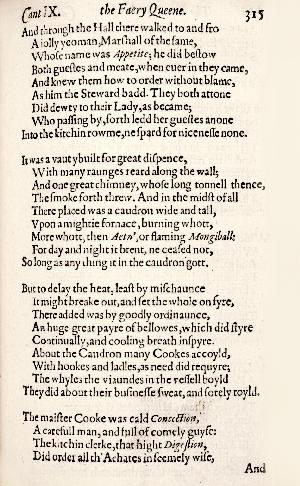 Cant. IX. the Faery Queene. 315
And through the Hall there walked to and fro
A iolly yeoman, Marshall of the same,
Whose name was Appetite; he did bestow
Both guestes and meate, when euer in they came,
And knew them how to order without blame,
As him the Steward badd. They both attone
Did dewty to their Lady, as became;
Who passing by, forth ledd her guestes anone
Into the kitchin rowme, ne spard for nicenesse none.
It was a vaut ybuilt for great dispence,
With many raunges reard along the wall;
And one great chimney, whose long tonnell thence,
The smoke forth threw. And in the midst of all
There placed was a caudron wide and tall,
Vpon a mightie fornace, burning whott,
More whott, then Aetn', or flaming Mongiball:
For day and night it brent, ne ceased not,
So long as any thing it in the caudron gott.
But to delay the heat, least by mischaunce
It might breake out, and set the whole on fyre,
There added was by goodly ordinaunce,
An huge great payre of bellowes, which did styre
Continually, and cooling breath inspyre.
About the Caudron many Cookes accoyld,
With hookes and ladles, as need did requyre;
The whyles the viaundes in the vessell boyld
They did about their businesse sweat, and sorely toyld.
The maister Cooke was cald Concoction,
A carefull man, and full of comely guyse:
The kitchin clerke, that hight Digestion,
Did order all th'Achates in seemely wise,
And